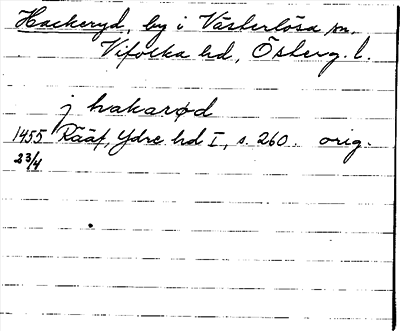 Hackeryd, by i Västerlösa sn.
Vifolka hd, Österg. l.
j hakarød
1455 Rääf, Ydre hd I, s. 260. orig.
23/4